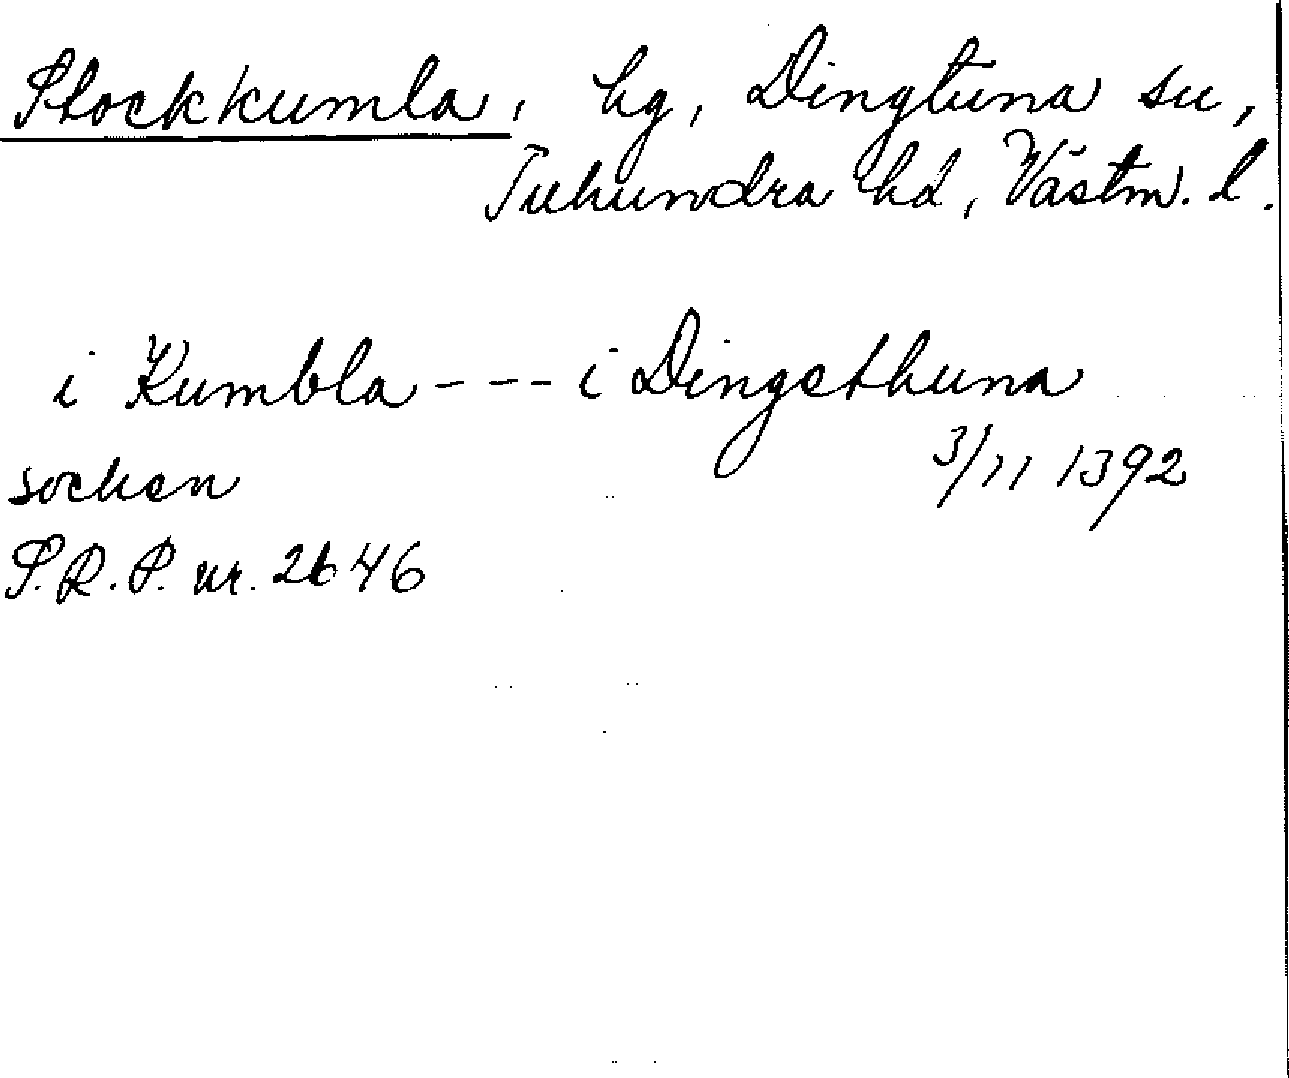 Stockkumla, hg, Dingtuna sn,
Tuhundra hd, Västm. l.
i Kumbla --- i Dingethuna
3/11 1392
socken
S.R.P. nr. 2646